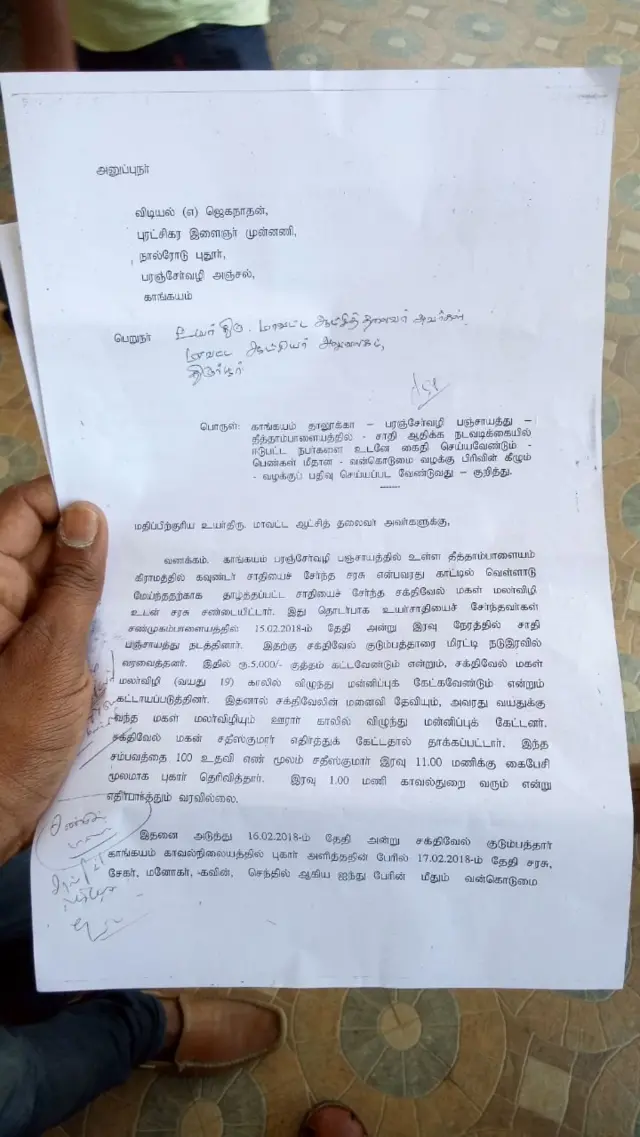 அனுப்புநர்
விடியல் (எ) ஜெகநாதன்,
புரட்சிகர இளைஞர் முன்னணி,
நால்ரோடு புதூர்,
பரஞ்சேர்வழி அஞ்சல்,
காங்கயம்
பெறுநர் உயர்திரு. மாவட்ட ஆட்சித் தலைவர் அவர்கள்,
மாவட்ட ஆட்சியர் அலுவலகம்,
திருப்பூர்
பொருள்: காங்கயம் தாலூக்கா – பரஞ்சேர்வழி பஞ்சாயத்து –
தீத்தாம்பாளையத்தில் - சாதி ஆதிக்க நடவடிக்கையில்
ஈடுபட்ட நபர்களை உடனே கைது செய்யவேண்டும் -
பெண்கள் மீதான - வன்கொடுமை வழக்கு பிரிவின் கீழும்
- வழக்குப் பதிவு செய்யப்பட வேண்டுவது – குறித்து.
------
மதிப்பிற்குரிய உயர்திரு. மாவட்ட ஆட்சித் தலைவர் அவர்களுக்கு,
வணக்கம். காங்கயம் பரஞ்சேர்வழி பஞ்சாயத்தில் உள்ள தீத்தாம்பாளையம்
கிராமத்தில் கவுண்டர் சாதியைச் சேர்ந்த சரசு என்பவரது காட்டில் வெள்ளாடு
மேய்ந்ததற்காக தாழ்த்தப்பட்ட சாதியைச் சேர்ந்த சக்திவேல் மகள் மலர்விழி
உடன் சரசு சண்டையிட்டார். இது தொடர்பாக உயர்சாதியைச் சேர்ந்தவர்கள்
சண்முகம்பாளையத்தில் 15.02.2018-ம் தேதி அன்று இரவு நேரத்தில் சாதி
பஞ்சாயத்து நடத்தினார். இதற்கு சக்திவேல் குடும்பத்தாரை மிரட்டி நடுஇரவில்
வரவைத்தனர். இதில் ரூ.5.000/- குத்தம் கட்டவேண்டும் என்றும், சக்திவேல் மகள்
மலர்விழி (வயது 19) காலில் விழுந்து மன்னிப்புக் கேட்கவேண்டும் என்றும்
கட்டாயப்படுத்தினர். இதனால் சக்திவேலின் மனைவி தேவியும், அவரது வயதுக்கு
வந்த மகள் மலர்விழியும் ஊரார் காலில் விழுந்து மன்னிப்புக் கேட்டனர்.
சக்திவேல் மகன் சதீஸ்குமார் எதிர்த்துக் கேட்டதால் தாக்கப்பட்டார். இந்த
சம்பவத்தை 100 உதவி எண் மூலம் சதீஸ்குமார் இரவு 11.00 மணிக்கு கைபேசி
மூலமாக புகார் தெரிவித்தார். இரவு 1.00 மணி காவல்துறை வரும் என்று
எதிர்பார்த்தும் வரவில்லை.
இதனை அடுத்து 16.02.2018-ம் தேதி அன்று சக்திவேல் குடும்பத்தார்
காங்கயம் காவல்நிலையத்தில் புகார் அளித்ததின் பேரில் 17.02.2018-ம் தேதி சரசு,
சேகர், மனோகர், கவின், செந்தில் ஆகிய ஐந்து பேரின் மீதும் வன்கொடுமை